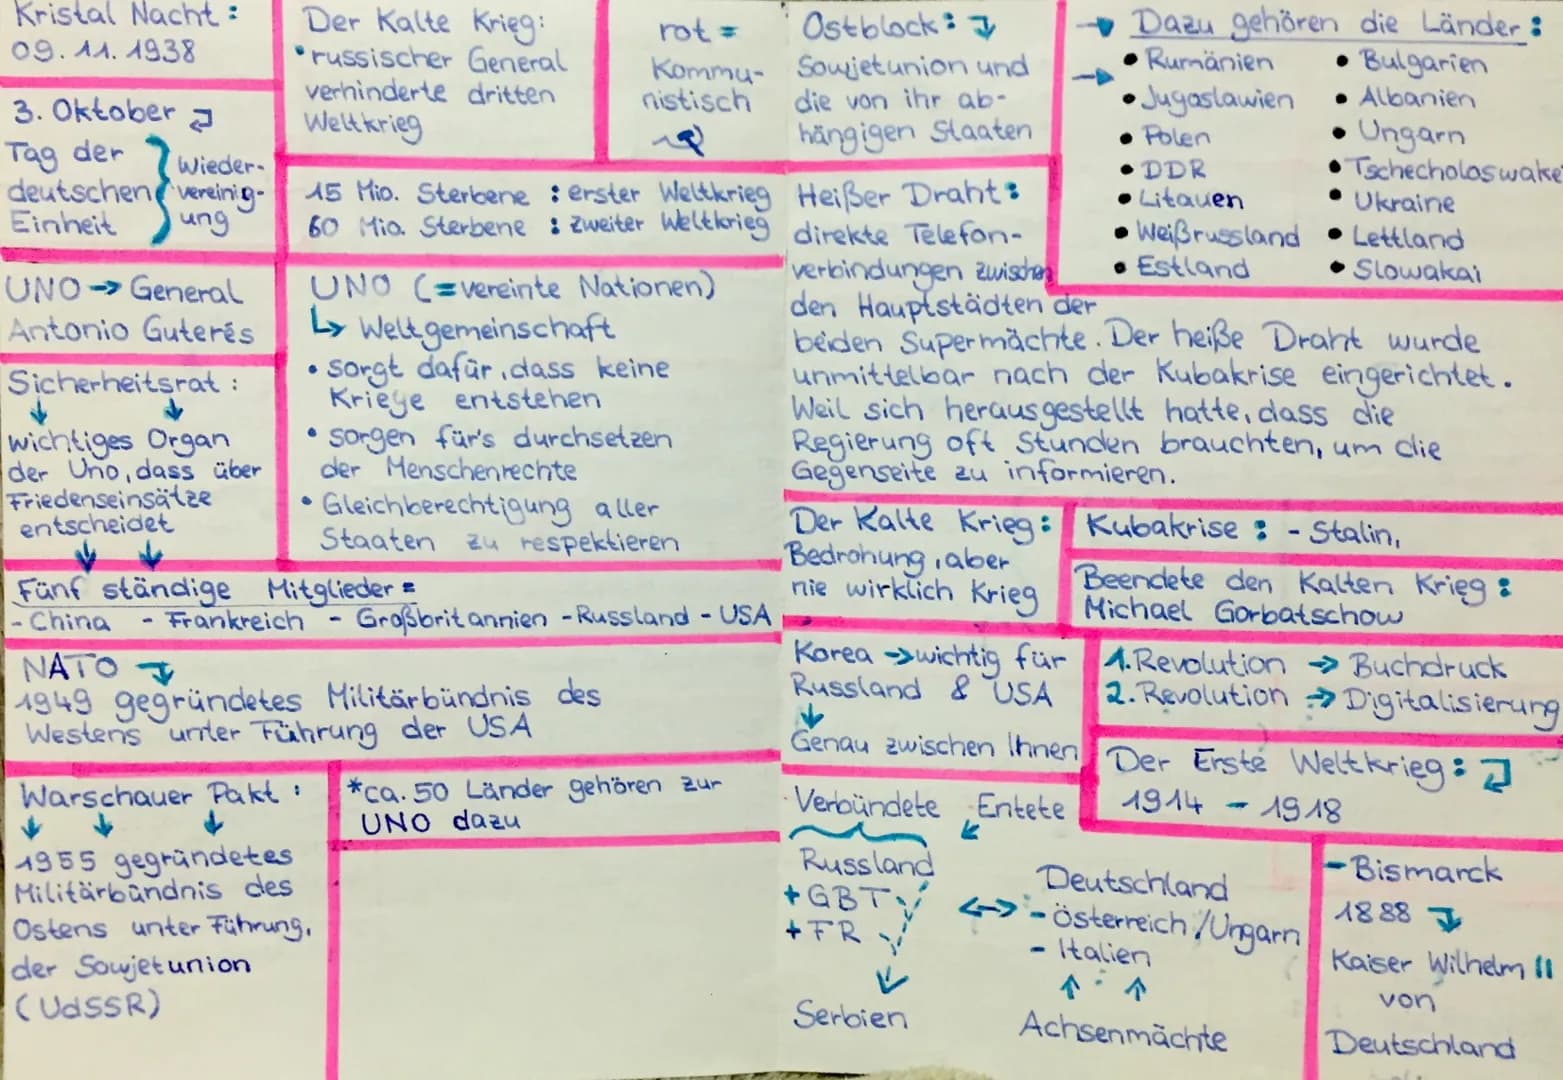 Kristal Nacht:
09.11.1938
3. Oktober
Tag der
deutschen
Einheit
Wieder-
vereinig-
ung
UNO → General
Antonio Guterés
Sicherheitsrat:
wichtiges Organ
der Uno, dass über
Friedenseinsätze
entscheidet
Der Kalte Krieg:
• russischer General
verhinderte dritten
Weltkrieg
rot =
Kommu-
nistisch
15 Mio. Sterbene : erster Weltkrieg
60 Mio. Sterbene : zweiter Weltkrieg
UNO (= vereinte Nationen)
↳ Weltgemeinschaft
• sorgt dafür, dass keine
Kriege entstehen
• sorgen für's durchsetzen
der Menschenrechte
• Gleichberechtigung aller
Staaten zu respektieren
Fünf ständige Mitglieder =
- China - Frankreich - Großbritannien - Russland - USA
NATO
1949 gegründetes Militärbündnis des
Westens unter Führung der USA
Warschauer Pakt :
1955 gegründetes
Militärbündnis des
Ostens unter Führung,
der Sowjetunion
(UdSSR)
*ca. 50 Länder gehören zur
UNO dazu
Ostblock:
Sowjetunion und
die von ihr ab-
hängigen Staaten
→ Dazu gehören die Länder:
→ • Rumänien
• Jugoslawien
• Polen
• DDR
• Litauen
• Weißrussland
• Estland
• Bulgarien
• Albanien
• Ungarn
• Tschecholoswake
• Ukraine
• Lettland
• Slowakai
Heißer Draht:
direkte Telefon-
verbindungen zwischen
den Hauptstädten der
beiden Supermächte. Der heiße Draht wurde
unmittelbar nach der Kubakrise eingerichtet.
Weil sich herausgestellt hatte, dass die
Regierung oft Stunden brauchten, um die
Gegenseite zu informieren.
Der Kalte Krieg:
Bedrohung, aber
nie wirklich Krieg
Kubakrise : - Stalin,
Beendete den Kalten Krieg:
Michael Gorbatschow
Korea → wichtig für
Russland & USA
Genau zwischen Ihnen
1. Revolution → Buchdruck
2. Revolution → Digitalisierung
Der Erste Weltkrieg:
1914 - 1918
Verbündete Entete
Russland
+ GBT
+ FR
Serbien
↔ Deutschland
- Österreich/Ungarn
- Italien
Achsenmächte
- Bismarck
1888
Kaiser Wilhelm II
von
Deutschland